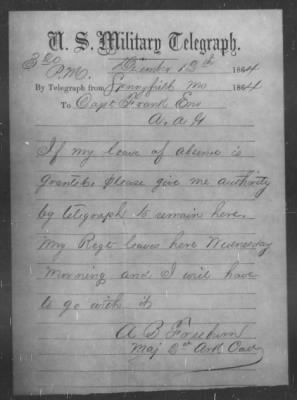 U. S. Military Telegraph.
3 20 P.M. December 13th 1864
By Telegraph from Springfield Mo 1864
To Capt Frank Eno
A. A. G
If my leave of absense is
granted Please give me authority
by telegraph to remain here.
My Regt leaves here Wednesday
Morning and I will have
to go with it
A B Freeburn
Maj 2nd Ark Cav